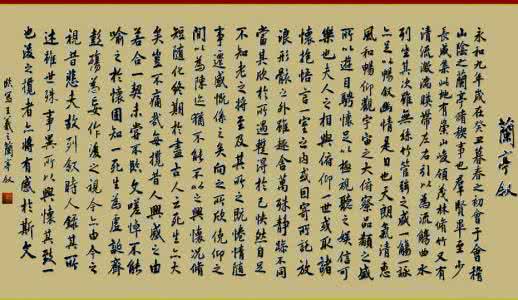 蘭亭叙
永和九年歲在癸丑暮春之初會于會稽
山陰之蘭亭脩稧事也群賢畢至少
長咸集此地有崇山峻領茂林脩竹又有
清流激湍暎帶左右引以為流觴曲水
列坐其次雖無絲竹管弦之盛一觴一詠
亦足以暢叙幽情是日也天朗氣清惠
風和暢仰觀宇宙之大俯察品類之盛
所以遊目騁懷足以極視聽之娛信可
樂也夫人之相與俯仰一世或取諸
懷抱悟言一室之內或因寄所託放
浪形骸之外雖趣舍萬殊静躁不同
當其欣於所遇蹔得於己怏然自足
不知老之將至及其所之既惓情隨
事遷感慨係之矣向之所欣俛仰之
間以為陳迹猶不能不以之興懷況脩
短隨化終期於盡古人云死生亦大
矣豈不痛哉每攬昔人興感之由
若合一契未嘗不臨文嗟悼不能
喻之於懷固知一死生為虛誕齊
彭殤為妄作後之視今亦由今之
視昔悲夫故列叙時人錄其所
述雖世殊事異所以興懷其致一
也後之攬者亦將有感於斯文
王羲之蘭亭叙